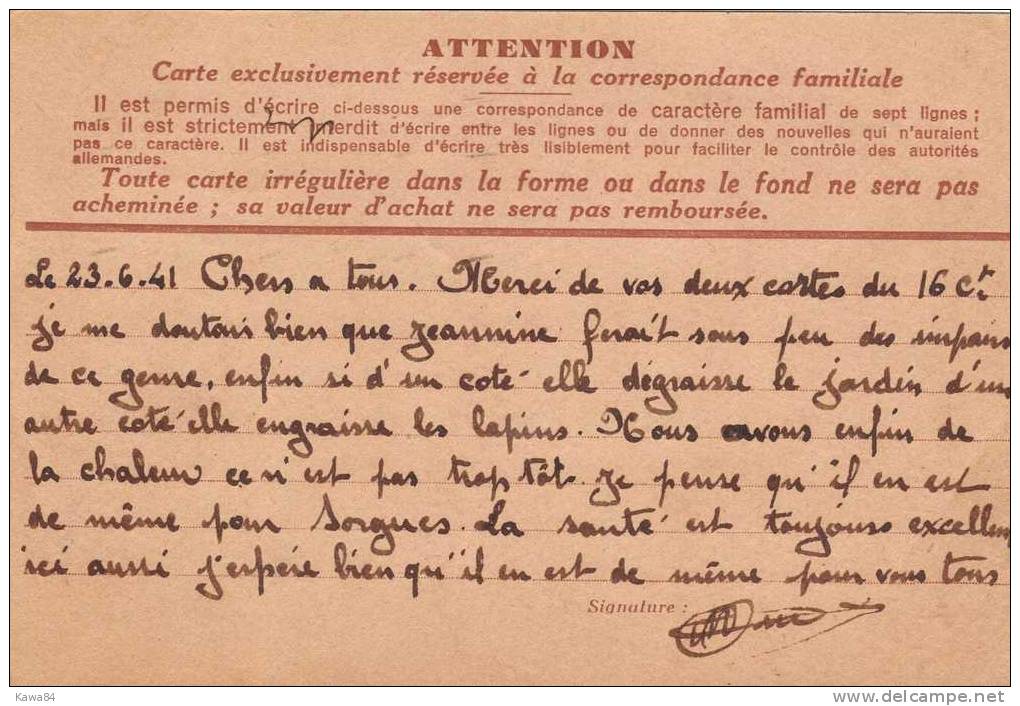 ATTENTION
Carte exclusivement réservée à la correspondance familiale
Il est permis d'écrire ci-dessous une correspondance de caractère familial de sept lignes ;
mais il est strictement interdit d'écrire entre les lignes ou de donner des nouvelles qui n'auraient
pas ce caractère. Il est indispensable d'écrire très lisiblement pour faciliter le contrôle des autorités
allemandes.
Toute carte irrégulière dans la forme ou dans le fond ne sera pas
acheminée ; sa valeur d'achat ne sera pas remboursée.
Le 23.6.41 Chers a tous. Merci de vos deux cartes du 16 Ct
je me doutais bien que Jeannine ferait sous peu des impairs
de ce genre, enfin si d'un coté elle dégraisse le jardin d'un
autre coté elle engraisse les lapins. Nous avons enfin de
la chaleur ce n'est pas trop tôt. Je pense qu'il en est
de même pour Sorgues. La santé est toujours excellen
ici aussi j'espère bien qu'il en est de même pour vous tous
Signature :
Kawa84
www.delcampe.net